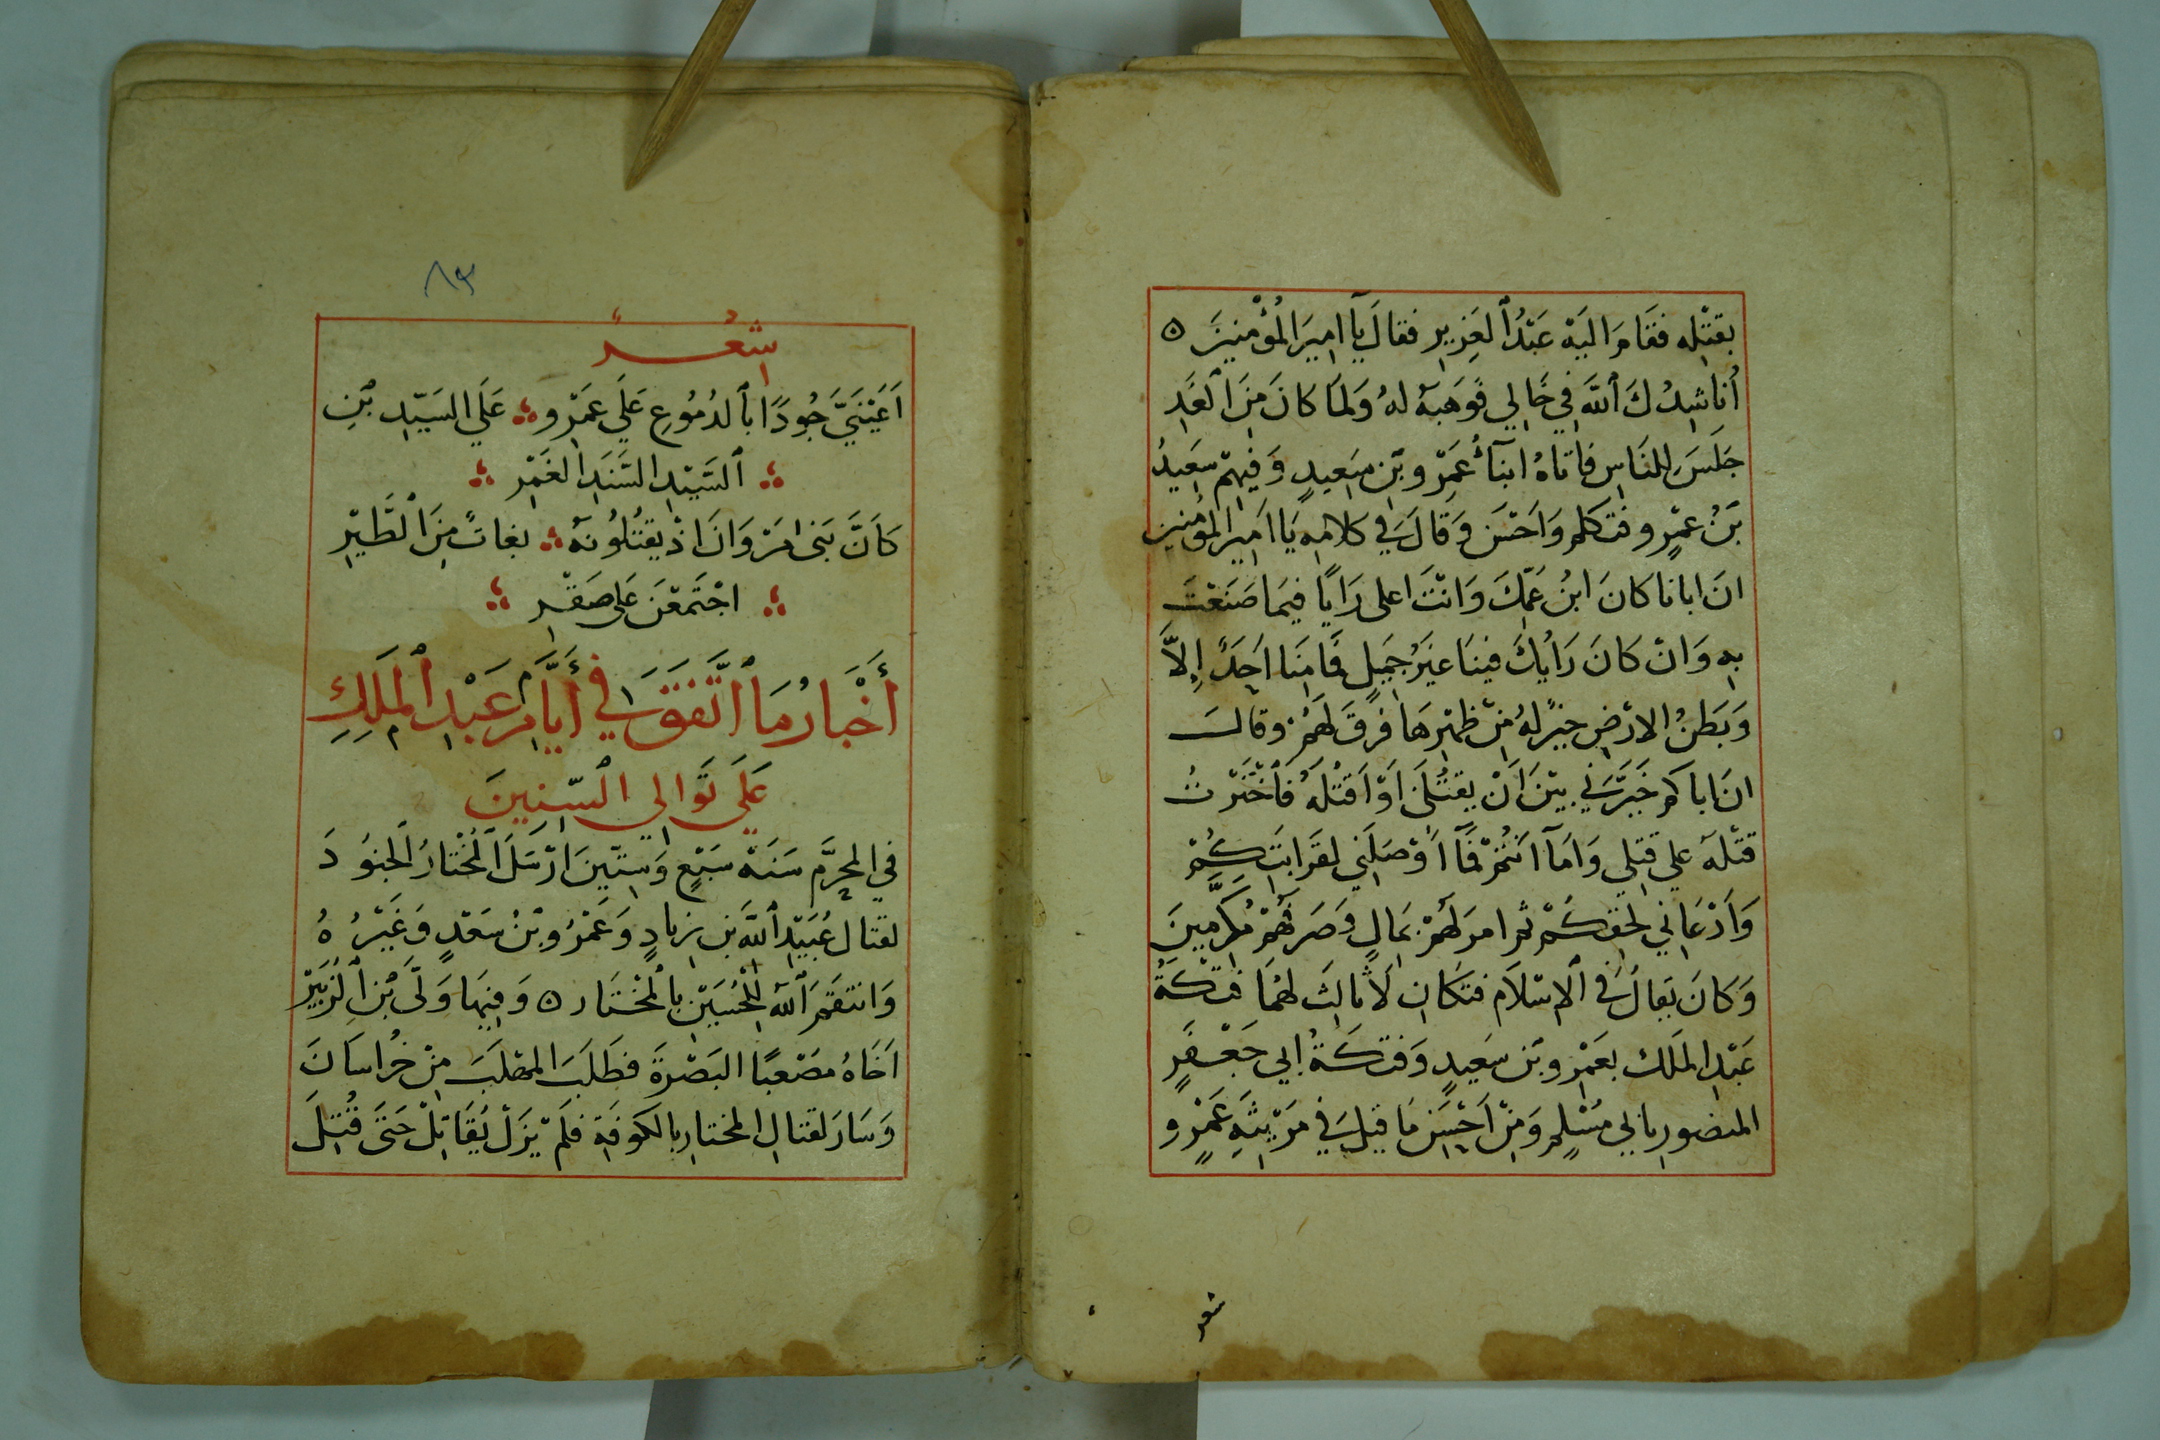 بقتْله فقَامَ اليَه عَبْدُ العَزيزِ فقالَ يآ امِيرَ المُؤْمنينَ ه
أُناشِدُكَ اللّٰهَ في خَالي فوَهبَهُ لهُ وَلمَا كانَ مِنَ الغَدِ
جَلَسَ للنَاسِ فاتاهُ ابنآءُ عَمْرِو بْنِ سَعيدٍ وَفيهمْ سَعِيدُ
بْنُ عمْرٍو فتكلم وَاحْسَن وَقالَ في كلامِه يَا امِيرَ المؤمنين
انَ ابانا كانَ ابنُ عَمّكَ وَانْتَ اعلى رَايًا فيمَا صَنَعْتَ
بِه وَانْ كانَ رَايُكَ فينَا غيَرُ جَميلٍ فمَا مِنَا احَدٌ إِلاَّ
وَبَطنُ الارْضِ خيرٌ لهُ مِنْ ظهْرِهَا فرقَ لهَمْ وقالَ
انَ اباكم خَيَّرَني بيْنَ اَنْ يقتُلَني اَوْ اَقتُلَهُ فاخْتَرْتُ
قتْلهُ علي قتِلي وَامَآ انتُمْ فمَآ اَوْصَلَنِي لقرَابتِكُمْ
وَاَرْعَانِي لحِقكُمْ ثم امر لَهُمْ بمَالٍ وَصَرَفهُمْ مُكرَّمِينَ
وَكانَ يُقالُ في الاِسْلاَمِ فتكانِ لاَ ثالِثَ لهُمَا فتكةُ
عَبْدِ المَلك بعَمْرِو بْنِ سَعِيدٍ وَفتكَةُ ابي جَعْفَرٍ
المنصُورِ بابي مُسْلمٍ وَمِنْ اَحْسَنِ مَا قيِلَ في مَرْثِيَهِ عَمْرٍو
شعر
٨٣
شعْرٌ
اَعَيْنَيَّ جُودًا بالدُمُوعِ عَلَي عَمْرٍو ؞ عَلَي السَيّدِ بْنِ
؞ السَّيّدِ السَّنَدِ الغَمْرِ ؞
كَاَنَّ بَني مَرْوَانَ اذْ يقتُلُونهُ ؞ بغاثٌ مِنَ الطَّيْرِ
؞ اجْتمَعْنَ عَلي صَقْرِ ؞
أَخْبَارُ مَا اتَّفقَ في أَيَّامِ عَبْدِ المَلَكِ
عَلَي تَوَالِي السّنِينَ
في المحرَّمِ سَنَة سَبْعٍ وَسِتّينَ ارْسَلَ المُخْتارُ الجنوُدَ
لقتالِ عُبَيْدِ اللّٰه بْنِ زيادٍ وَعَمْرُو بْنُ سَعْدٍ وَغَيْرُهُ
وَانتقمَ اللّٰهُ للحُسَيْنِ بالمُخْتار ه وَفيهَا وَلَّى بْنِ الزُبَيْرْ
اَخَاهُ مصْعَبًا البَصْرَةَ فطلَبَ المهَلبَ مِنْ خُراسَانَ
وَسَارَ لقتالِ المختارِ بالكوفةِ فلَمْ يَزَلْ يُقَاتِلْ حَتَى قُتِلَ